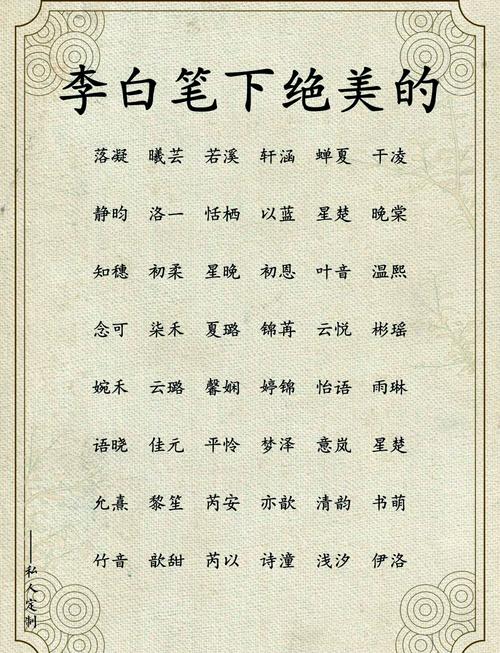 李白笔下绝美的
落凝 曦芸 若溪 轩涵 蝉夏 干凌
静昀 洛一 恬栖 以蓝 星楚 晚棠
知穗 初柔 星晚 初恩 叶音 温熙
念可 柒禾 夏璐 锦苒 云悦 彬瑶
婉禾 云璐 馨娴 婷锦 怡语 雨琳
语晓 佳元 平怜 梦泽 意岚 星楚
允熹 黎笙 芮安 亦歆 清韵 书萌
竹音 歆甜 芮以 诗潼 浅汐 伊洛
——私人定制